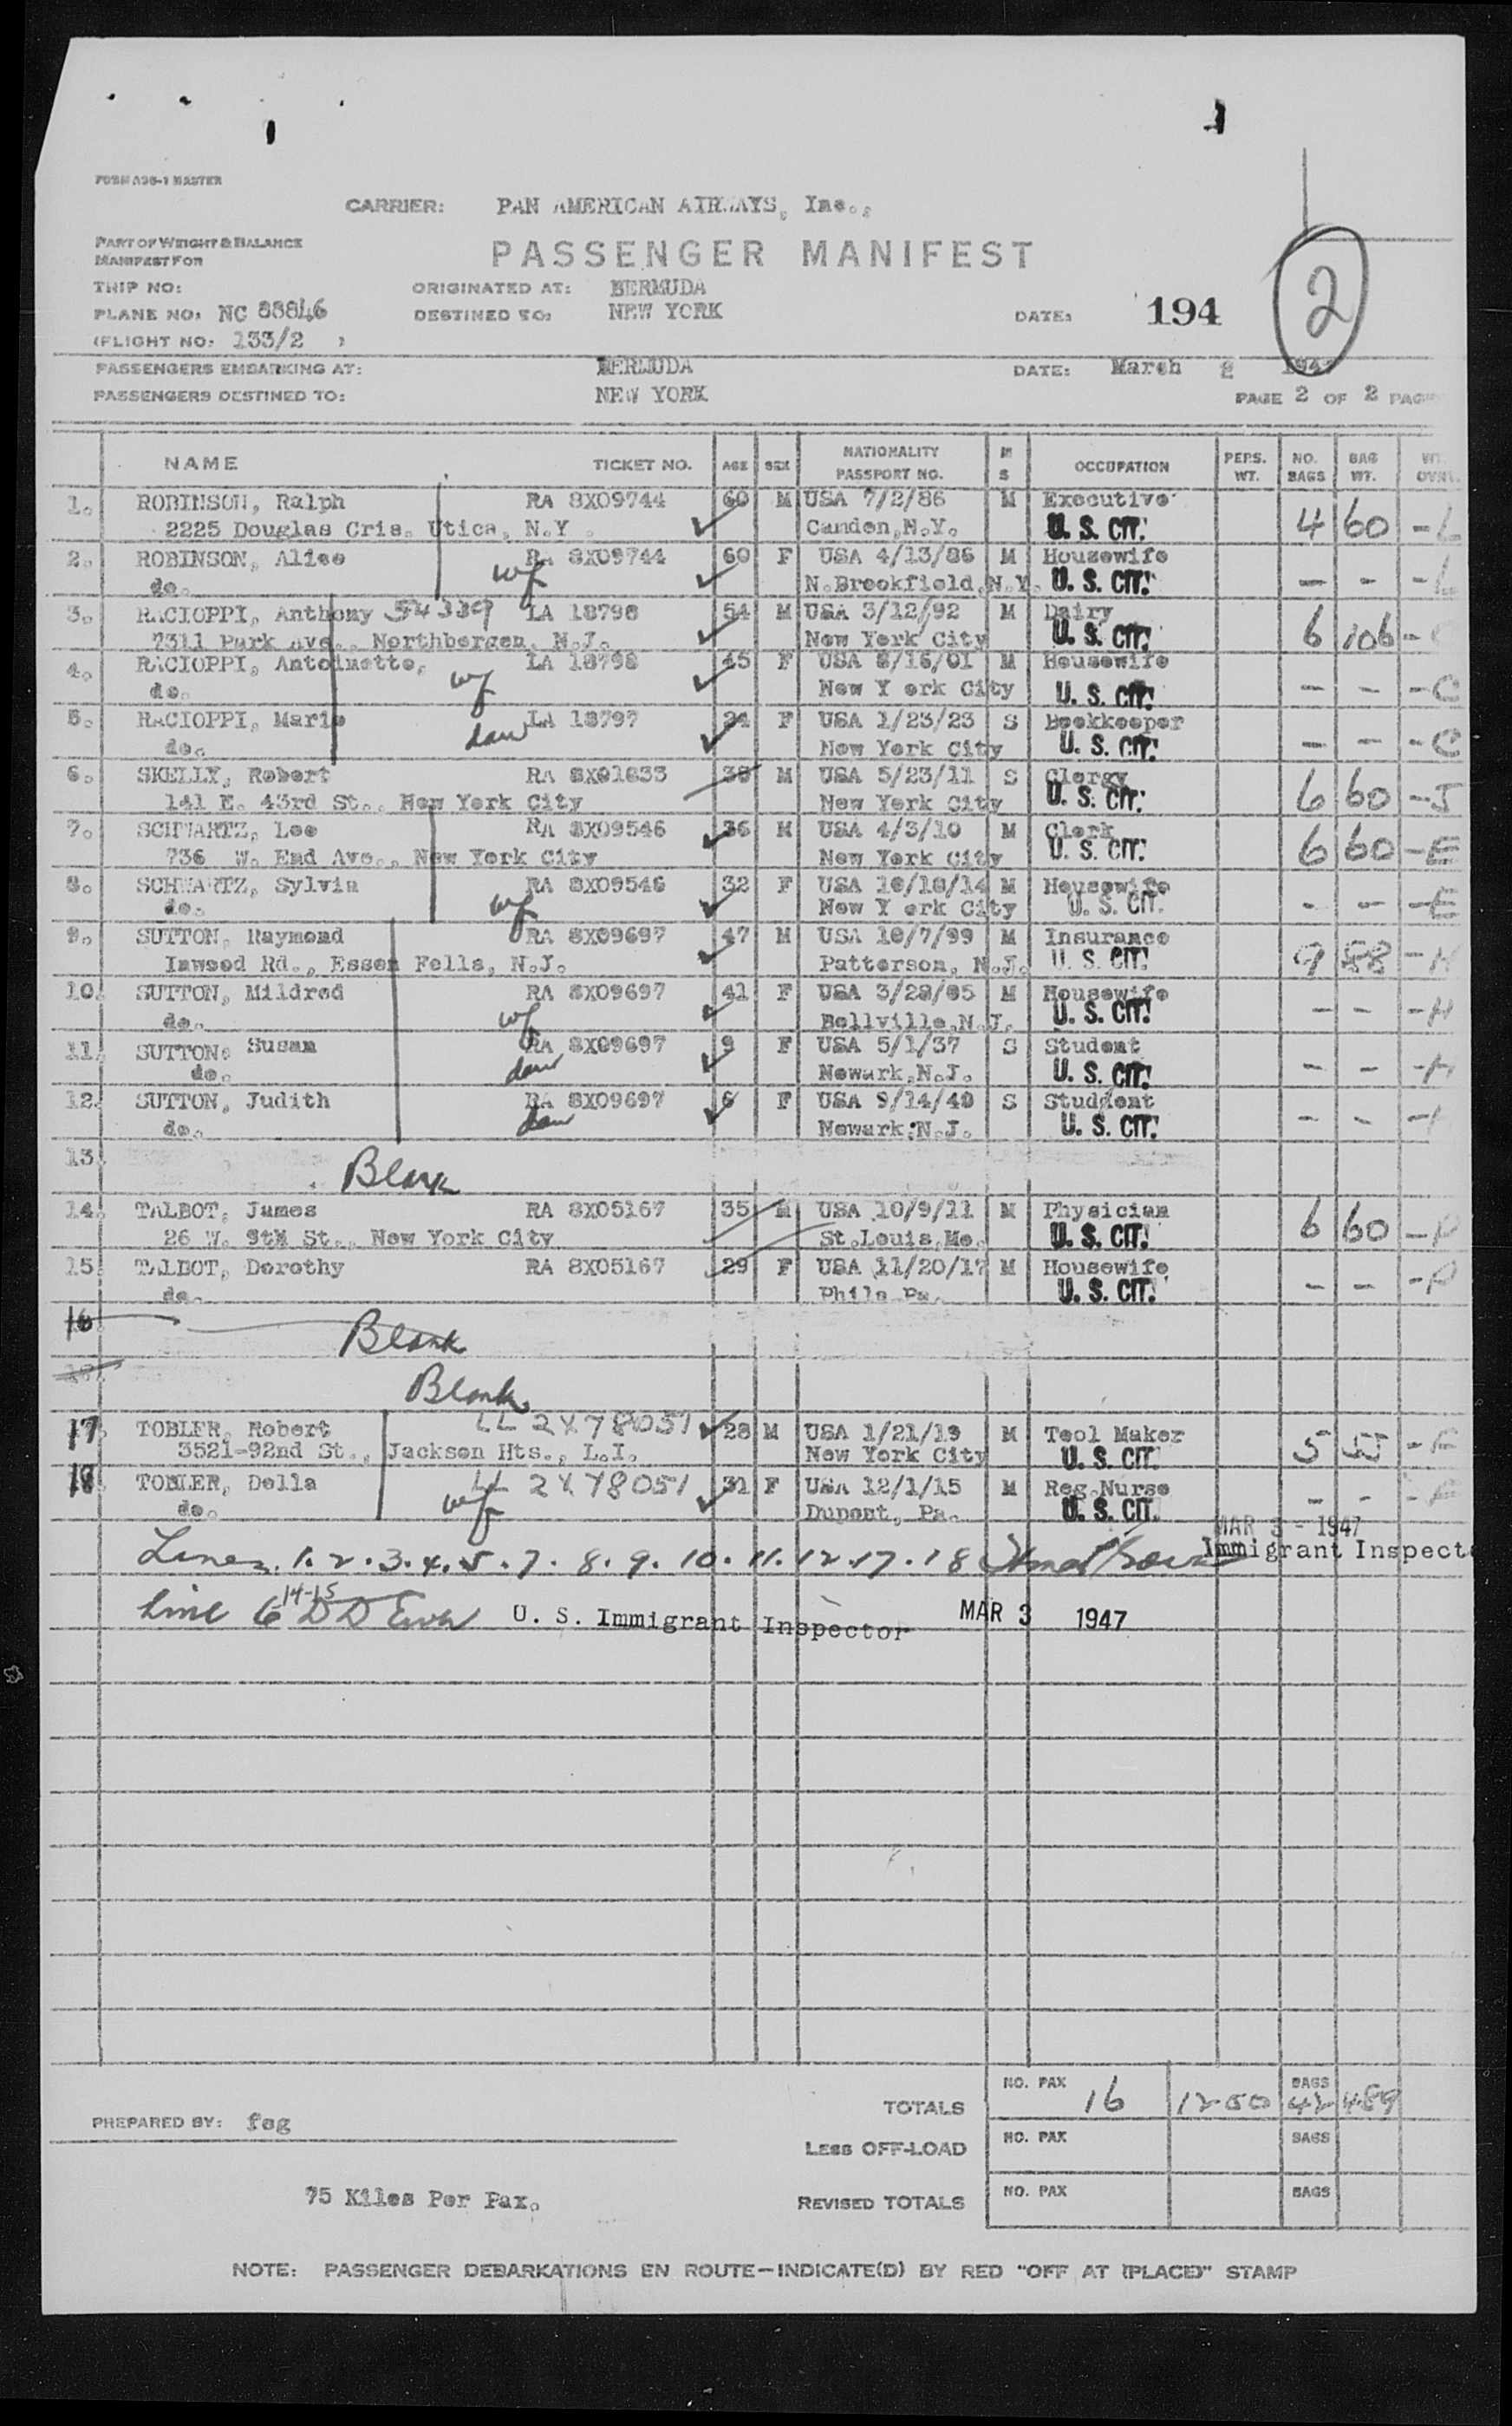 FORM A36-1 MASTER
CARRIER: PAN AMERICAN AIRWAYS, Inc.,
PART OF WEIGHT & BALANCE
MANIFEST FOR
PASSENGER MANIFEST
2
TRIP NO: ORIGINATED AT: BERMUDA
PLANE NO: NC 88846 DESTINED TO: NEW YORK DATE: 194
(FLIGHT NO: 133/2 )
PASSENGERS EMBARKING AT: BERMUDA DATE: March 2 194
PASSENGERS DESTINED TO: NEW YORK PAGE 2 OF 2
NAME TICKET NO. AGE SEX NATIONALITY PASSPORT NO. M S OCCUPATION PERS. WT. NO. BAGS BAG WT.
1. ROBINSON, Ralph RA 8X09744 60 M USA 7/2/86 M Executive 4 60 - L
2225 Douglas Cris. Utica, N.Y. Camden, N.Y. U. S. CIT.
2. ROBINSON, Alice wf RA 8X09744 60 F USA 4/13/86 M Housewife - - - L
do. N.Brookfield,N.Y. U. S. CIT.
3. RACIOPPI, Anthony 54339 LA 18798 54 M USA 3/12/92 M Dairy 6 106 -
7311 Park Ave., Northbergen, N.J. New York City U. S. CIT.
4. RACIOPPI, Antoinette, wf LA 18798 45 F USA 8/16/01 M Housewife - - - C
do. New Y ork City U. S. CIT.
5. RACIOPPI, Marie dau LA 18797 24 F USA 1/23/23 S Bookkeeper - - - C
do. New York City U. S. CIT.
6. SKELLY, Robert RA 8X01833 M USA 5/23/11 S Clergy 6 60 - J
141 E. 43rd St., New York City New York City U. S. CIT.
7. SCHWARTZ, Lee RA 8X09546 36 M USA 4/3/10 M Clerk 6 60 - E
736 W. End Ave., New York City New York City U. S. CIT.
8. SCHWARTZ, Sylvia wf RA 8X09546 32 F USA 10/18/14 M Housewife - - - E
do. New Y ork City U. S. CIT.
9. SUTTON, Raymond RA 8X09697 47 M USA 10/7/99 M Insurance 9 88 - H
Inwood Rd., Essex Fells, N.J. Patterson, N.J. U. S. CIT.
10. SUTTON, Mildred wf RA 8X09697 41 F USA 3/28/05 M Housewife - - - H
do. Bellville,N.J. U. S. CIT.
11. SUTTON, Susan dau RA 8X09697 9 F USA 5/1/37 S Student - - - H
do. Newark,N.J. U. S. CIT.
12. SUTTON, Judith dau RA 8X09697 6 F USA 9/14/40 S Student - - - H
do. Newark,N.J. U. S. CIT.
13. Blank
14. TALBOT, James RA 8X05167 35 M USA 10/9/11 M Physician 6 60 - P
26 W. 9th St., New York City St.Louis,Mo. U. S. CIT.
15. TALBOT, Dorothy RA 8X05167 29 F USA 11/20/17 M Housewife - - - P
do. Phila Pa. U. S. CIT.
16 Blank
Blank
17 TOBLER, Robert LL 2X78051 28 M USA 1/21/19 M Tool Maker 5 55 - F
3521-92nd St., Jackson Hts., L.I. New York City U. S. CIT.
18 TOBLER, Della wf LL 2X78051 31 F USA 12/1/15 M Reg.Nurse - - - F
do. Dupont, Pa. U. S. CIT.
MAR 3 - 1947
Lines. 1. 2. 3. 4. 5. 7. 8. 9. 10. 11. 12. 17. 18 Immigrant Inspect
line 6 14-15 U. S. Immigrant Inspector MAR 3 1947
TOTALS NO. PAX 16 1250 BAGS 42 489
PREPARED BY: fog
LESS OFF-LOAD NO. PAX BAGS
75 Kilos Per Pax. REVISED TOTALS NO. PAX BAGS
NOTE: PASSENGER DEBARKATIONS EN ROUTE—INDICATE(D) BY RED "OFF AT (PLACE)" STAMP